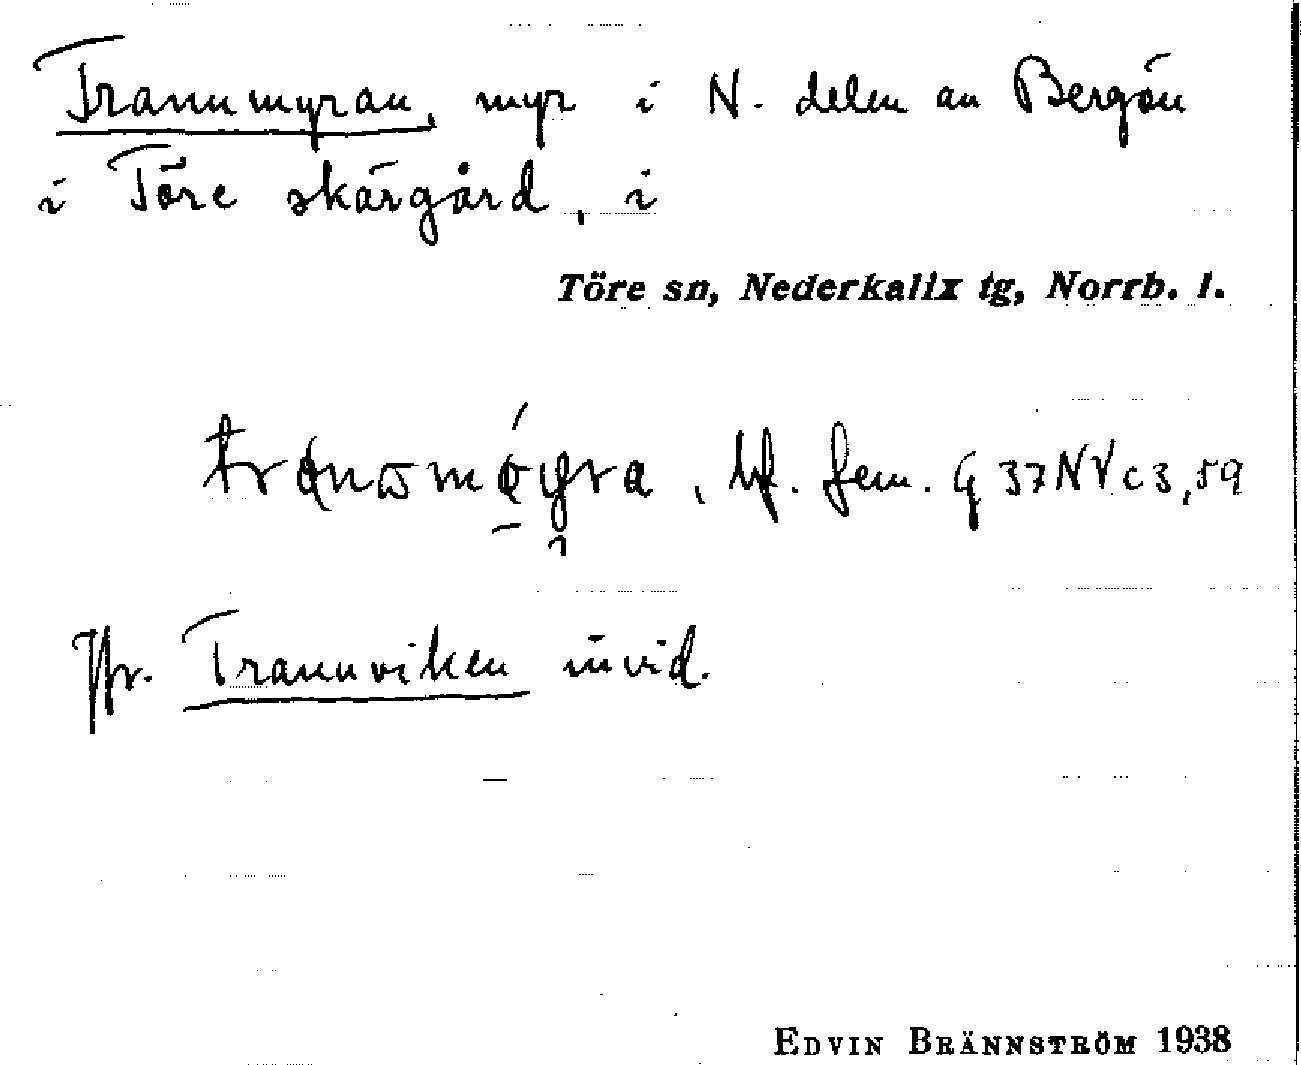 Tranumyran, myr i N. delen av Bergön
i Töre skärgård, i
Töre sn, Nederkalix tg, Norrb. l.
bf. fem. G 37NVc3,59
Jfr. Tranuviken invid.
EDVIN BRÄNNSTRÖM 1938